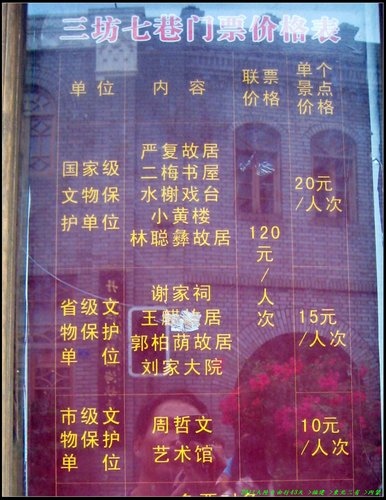 三坊七巷门票价格表
单位
内容
联票
价格
单个
景点
价格
国家级
文物保
护单位
严复故居
二梅书屋
水榭戏台
小黄楼
林聪彝故居
20元
/人次
120
元
/
人
次
省级文
物保护
单位
谢家祠
王麒故居
郭柏荫故居
刘家大院
15元
/人次
市级文
物保护
单位
周哲文
艺术馆
10元
/人次